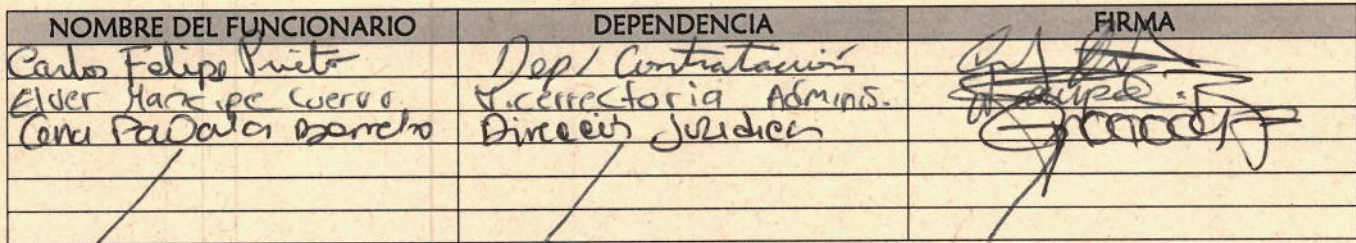 NOMBRE DEL FUNCIONARIO DEPENDENCIA FIRMA
Carlos Felipe Prieto Dep/ Contratación
Elver Mancipe Cuervo. Vicerrectoria Adminis.
Barreto Dirección Juridica